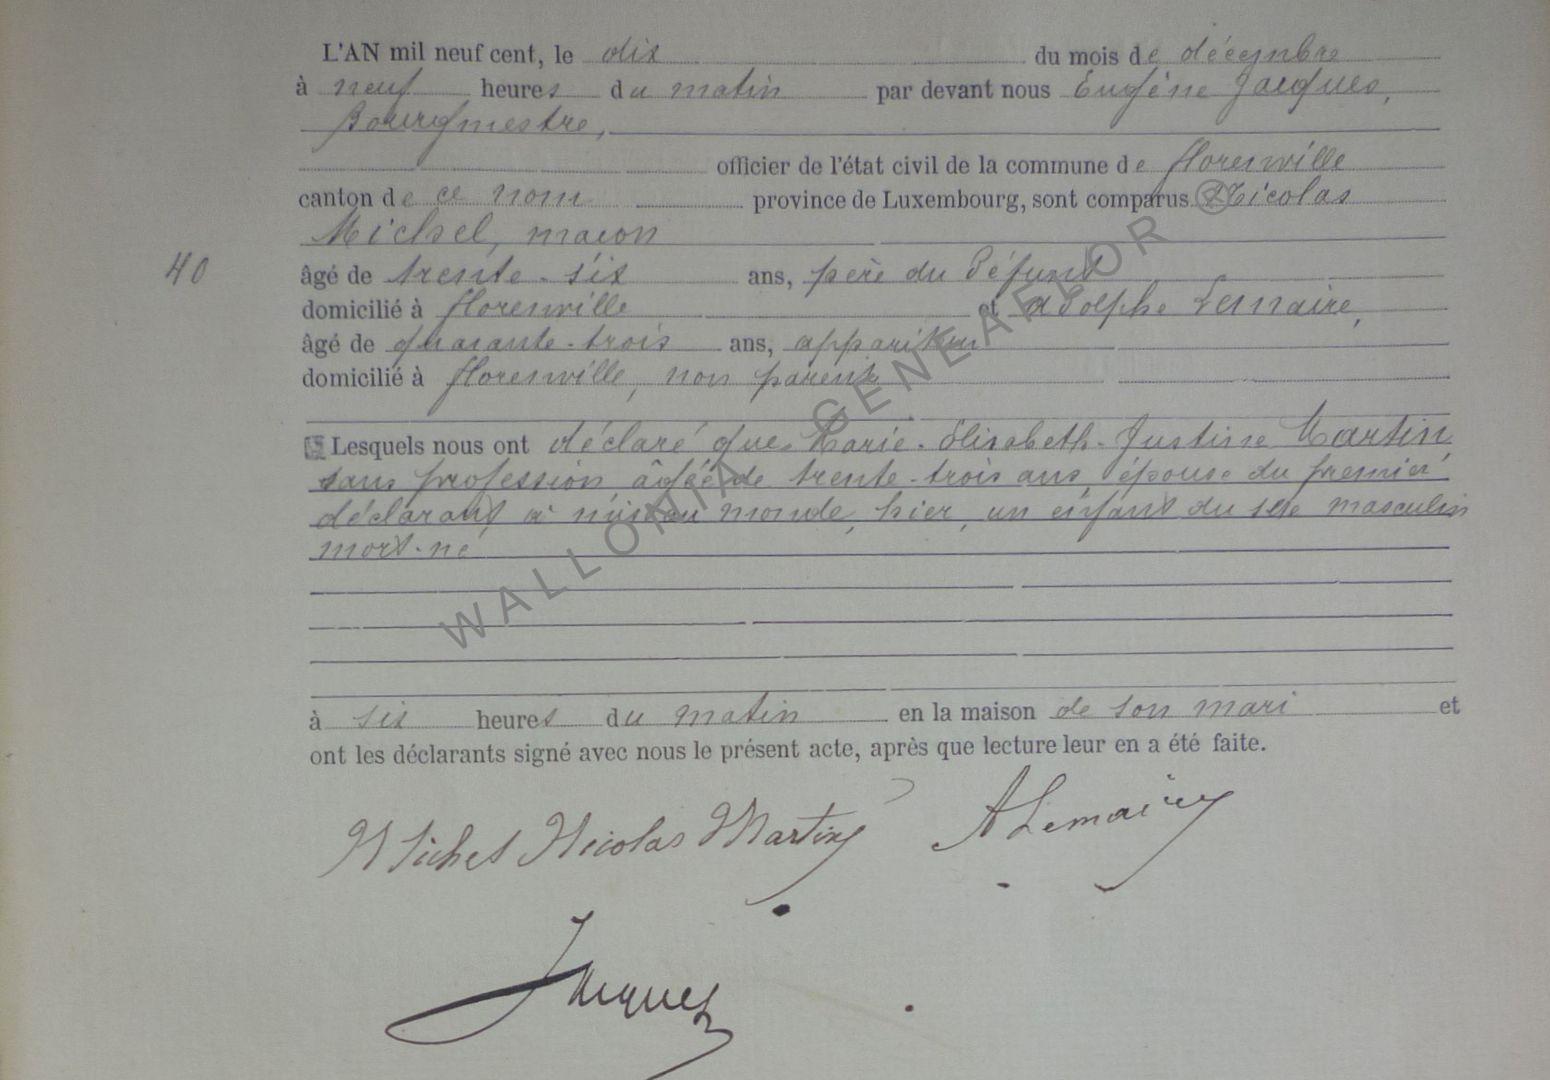 L'AN mil neuf cent, le dix du mois de décembre
à neuf heures du matin par devant nous Eugène Jacques,
Bourgmestre,
officier de l'état civil de la commune de florenville
canton de ce nom province de Luxembourg, sont comparus Nicolas
Michel, maçon
40 âgé de trente-six ans, père du Défunt
domicilié à florenville et adolphe Lemaire,
âgé de quarante-trois ans, appariteur
domicilié à florenville, non parent
Lesquels nous ont déclaré que Marie-Elisabeth-Justine Martin,
sans profession âgée de trente-trois ans, épouse du premier
déclarant a mis au monde, hier, un enfant du sexe masculin
mort-né
à six heures du matin en la maison de son mari et
ont les déclarants signé avec nous le présent acte, après que lecture leur en a été faite.
Michel Nicolas Martin A Lemaire
Jacques
WALLONIA GENEAFLOR